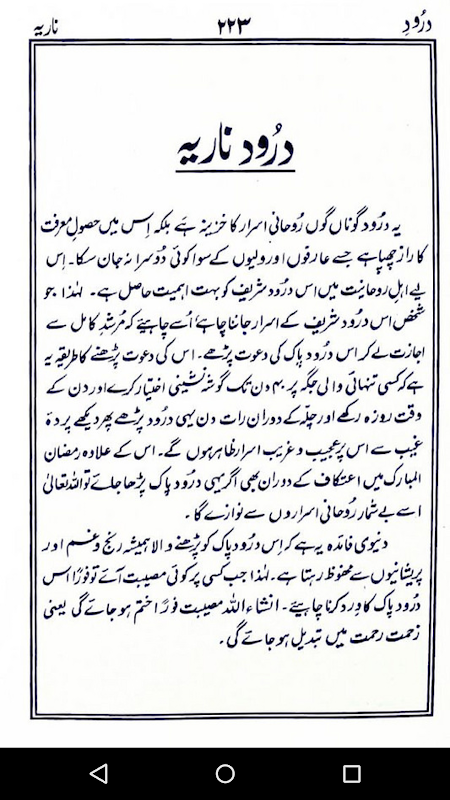 درُودِ ۲۲۳ ناریہ
درُود ناریہ
یہ درُود گوناں گوں رُوحانی اسرار کا خزینہ ہے بلکہ اِس میں حصولِ معرفت
کا راز چھپا ہے جسے عارفوں اور ولیوں کے سوا کوئی دُوسرا نہ جان سکا۔ اِس
لیے اہلِ روحانیت میں اس درُود شریف کو بہت اہمیت حاصل ہے۔ لہٰذا جو
شخص اس درُود شریف کے اسرار جاننا چاہے اُسے چاہیئے کہ مُرشدِ کامل سے
اجازت لے کر اس درُود پاک کی دعوت پڑھے۔ اس کی دعوت پڑھنے کا طریقہ یہ
ہے کہ کسی تنہائی والی جگہ پر ۴۰ دن تک گوشہ نشینی اختیار کرے اور دن کے
وقت روزہ رکھے اور چلّہ کے دوران رات دن یہی درُود پڑھے پھر دیکھے پردۂ
غیب سے اس پر عجیب و غریب اسرار ظاہر ہوں گے۔ اس کے علاوہ رمضان
المبارک میں اعتکاف کے دوران بھی اگر یہی درُود پاک پڑھا جائے تو اللہ تعالیٰ
اسے بے شمار رُوحانی اسراروں سے نوازے گا۔
دنیوی فائدہ یہ ہے کہ اِس درُود پاک کو پڑھنے والا ہمیشہ رنج و غم اور
پریشانیوں سے محفوظ رہتا ہے۔ لہٰذا جب کسی پر کوئی مصیبت آئے تو فورًا اس
درُود پاک کا وِرد کرنا چاہیئے۔ انشاء اللہ مصیبت فورًا ختم ہو جائے گی یعنی
زحمت رحمت میں تبدیل ہو جائے گی۔